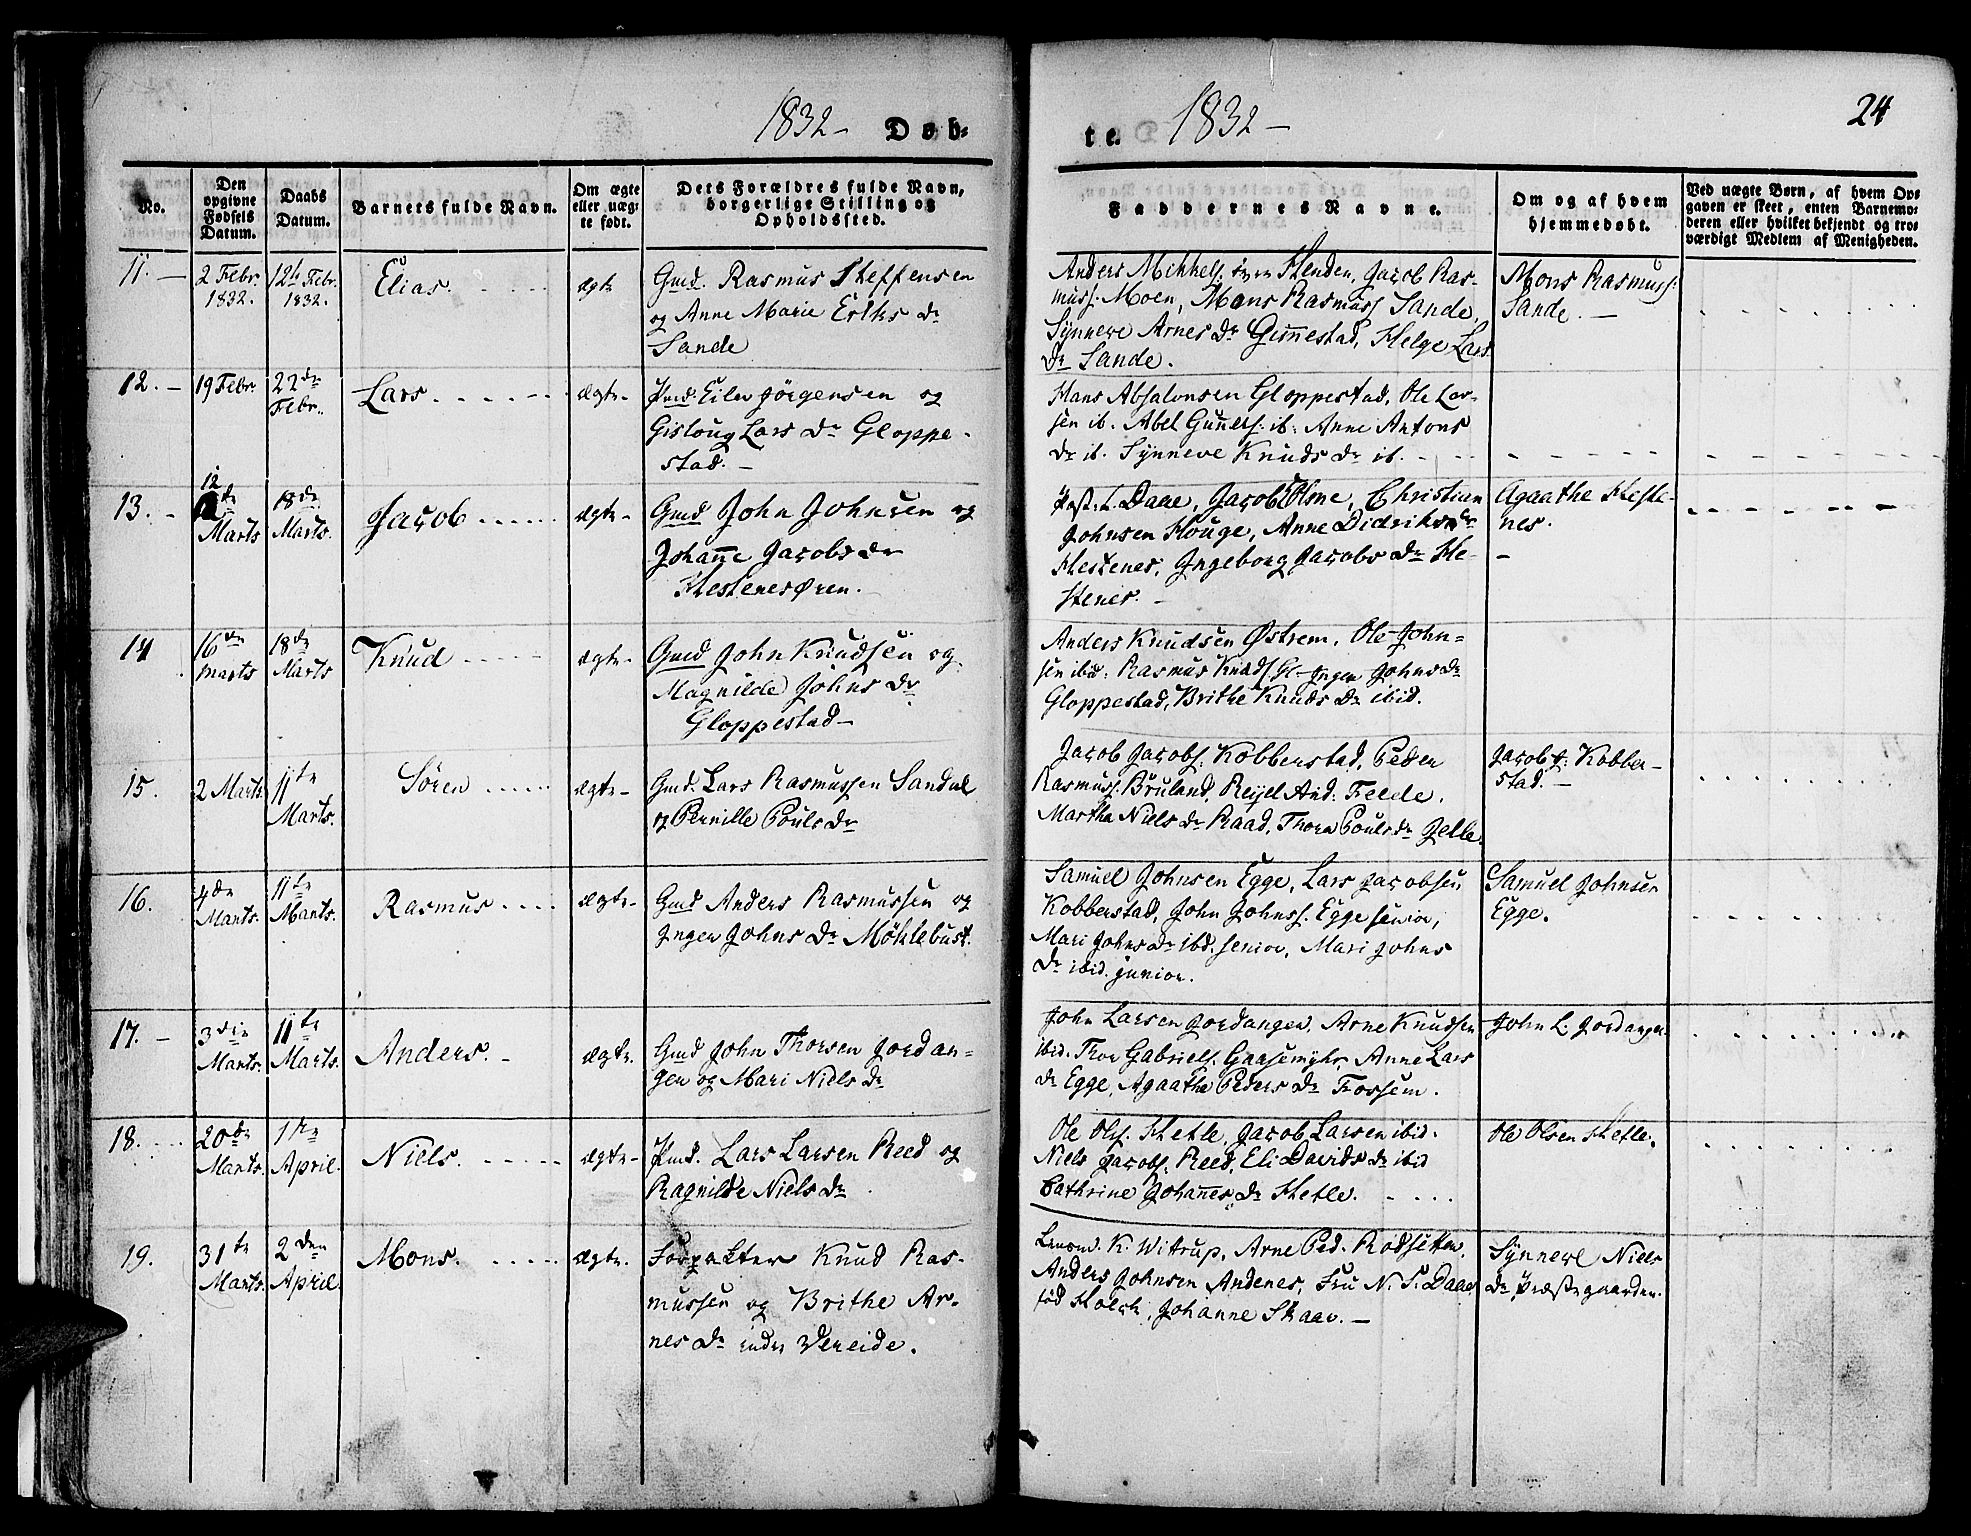 1832 - Døb-
te. 1832 -
24
No.
Den opgivne Fødsels Datum.
Daabs Datum.
Barnets fulde Navn.
Om ægte eller uægte født.
Dets Forældres fulde Navn, borgerlige Stilling og Opholdssted.
Faddernes Navne.
Om og af hvem hjemmedøbt.
Ved uægte Børn, af hvem Opgaven er skeet, enten Barnemoderen eller hvilket bekjendt og troværdigt Medlem af Menigheden.
11. -
2 Febr.
1832.
12te Febr.
1832.
Elias
ægte
Gmd. Rasmus Steffensen
og Anne Marie Eriks Dr
Sande
Anders Mikkels. Henden, Jacob Ras-
muss. Moen, Mons Rasmuss Sande,
Synneve Arnes Dr Gimmestad, Helge Lars
Dr Sande.
Mons Rasmuss.
Sande. -
12. -
19 Febr.
22de
Febr.
Lars
ægte-
Pmd. Eiler Jørgensen og
Gisloug Lars Dr Gloppe-
stad. -
Hans Absalonsen Gloppestad, Ole Lar-
sen ib. Abel Guners. ib. Anne Antons
Dr ib. Synneve Knuds Dr ib.
13. -
12
de
Marts
18de
Marts.
Jacob
ægte-
Gmd John Johnsen og
Johanne Jacobs dr
Hestenesøren.
Past. L. Daae, Jacob Olsne, Christian
Johnsen Houge, Anne Didriks dr
Hestenes, Ingeborg Jacobs Dr He-
stenes. -
Agaathe Heste-
nes.
-
14
16de
Marts
18de
Marts
Knud
ægte-
Gmd John Knudsen og
Magnilde Johns Dr
Gloppestad -
Anders Knudsen Østrem, Ole John-
sen ibid. Rasmus Knuds. Gl- Inger Johns dr
Gloppestad, Brithe Knuds Dr ibid.
15.
2 Marts.
11te
Marts.
Søren
ægte-
Gmd. Lars Rasmussen Sandal
og Pernille Pouls Dr
Jacob Jacobs. Kobberstad, Peder
Rasmuss. Bruland, Reyel And: Feede.
Martha Niels Dr Raad, Thora Pouls dr Jelle.
Jacob J: Kobber-
stad. -
16.
4de
Marts.
11te
Marts.
Rasmus
ægte-
Gmd Anders Rasmussen og
Inger Johns Dr Møklebust.
Samuel Johnsen Egge, Lars Jacobsen
Kobberstad, John Johnss. Egge senior,
Mari Johns Dr ibd. senior, Mari Johns
Dr ibid. junior.
Samuel Johnsen
Egge.
17. -
3die
Marts.
11te
Marts.
Anders. -
ægte.
Gmd John Thorsen Jordan-
gen og Mari Niels Dr
John Larsen Jordangen, Arne Knudsen
ibid. Thor Gabriels. Gaasemyhr, Anne Lars
Dr Egge, Agaathe Peders Dr Fossem.
John L. Jordangen
18.
20de
Marts.
1ste
April.
Niels.
ægte-
Pmd. Lars Larsen Reed og
Ragnilde Niels Dr
Ole Ols. Hetle, Jacob Larsen ibid.
Niels Jacobs. Reed, Eli Davids Dr ibid
Cathrine Johannes Dr Hetle.
Ole Olsen Hetle.
19.
31te
Marts.
2den
April.
Mons.
ægte.
Forpakter Knud Ras-
mussen og Brithe Ar-
nes Dr indre Vereide.
Lensmd. K. Witrup, Arne Ped. Rodseten,
Anders Johnsen Andenes, Fru N. S. Daae
fød Holck, Johanne Skaar. -
Synneve Niels
Dr Præstegaarden.